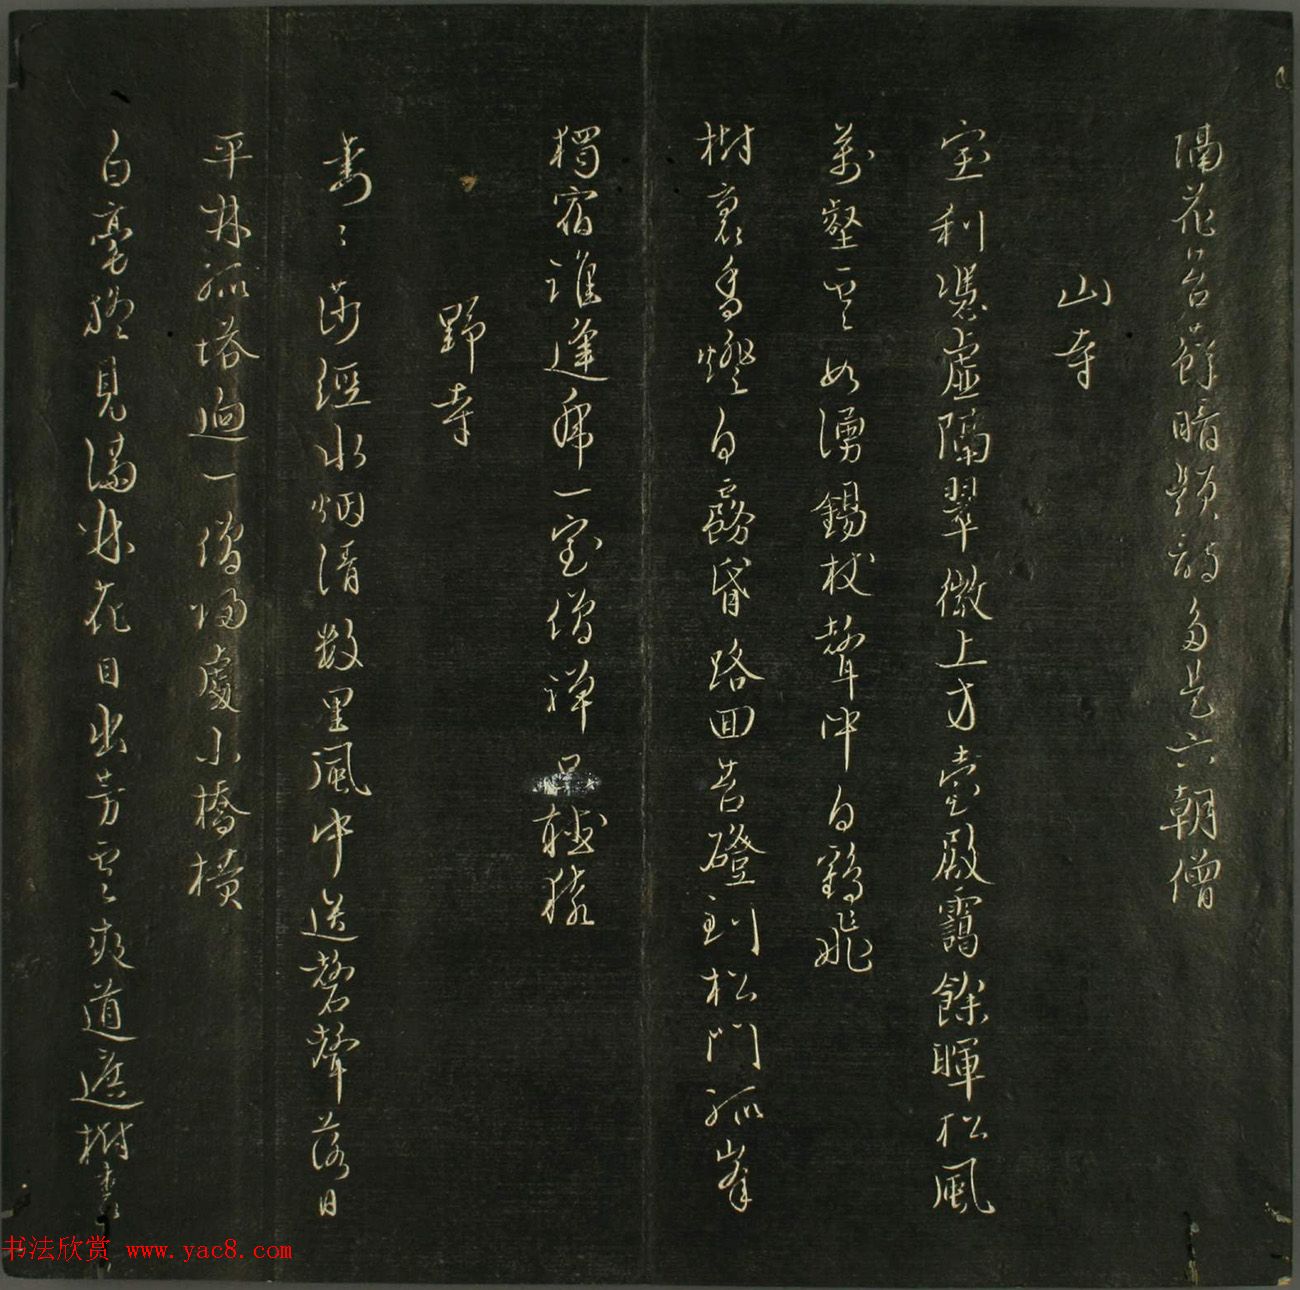 隔花茗蘚暗題詩多是六朝僧
山寺
寶利憑虛隔翠微上方臺殿靄餘暉松風
萬壑雲如湧錫杖聲中白鶴飛
樹裏香燈白霧昏路回苔磴到松門孤峯
獨宿誰逢處一室僧禪只聽猿
野寺
寿〻莎徑水烟清數里風中送磬聲落日
平林孤塔迥一僧歸處小橋橫
白毫終見滿林花目出芳雲夾道遮樹裏
书法欣赏 www.yac8.com